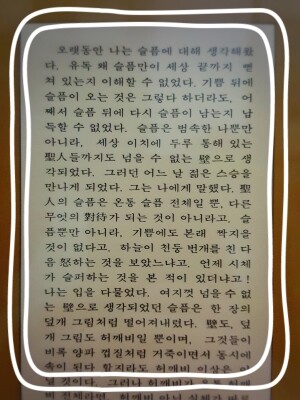 오랫동안 나는 슬픔에 대해 생각해왔
다. 유독 왜 슬픔만이 세상 끝까지 뻗
쳐 있는지 이해할 수 없었다. 기쁨 뒤에
슬픔이 오는 것은 그렇다 하더라도, 어
째서 슬픔 뒤에 다시 슬픔이 남는지 납
득할 수 없었다. 슬픔은 범속한 나뿐만
아니라, 세상 이치에 두루 통해 있는
聖人들까지도 넘을 수 없는 壁으로 생
각되었다. 그러던 어느 날 젊은 스승을
만나게 되었다. 그는 나에게 말했다. 聖
人의 슬픔은 온통 슬픔 전체일 뿐, 다른
무엇의 對待가 되는 것이 아니라고. 슬
픔뿐만 아니라, 기쁨에도 본래 짝지을
것이 없다고. 하늘이 천둥 번개를 친 다
음 怒하는 것을 보았느냐고. 언제 시체
가 슬퍼하는 것을 본 적이 있더냐고!
나는 입을 다물었다. 여지껏 넘을 수 없
는 壁으로 생각되었던 슬픔은 한 장의
덮개 그림처럼 떨어져내렸다. 壁도, 덮
개 그림도 허깨비일 뿐이며, 그것들이
비록 양파 껍질처럼 거죽이면서 동시에
속이 된다 할지라도 허깨비 이상은 아
닐 것이다. 그러나 허깨비가
비 전체라면, 허깨비 아닌